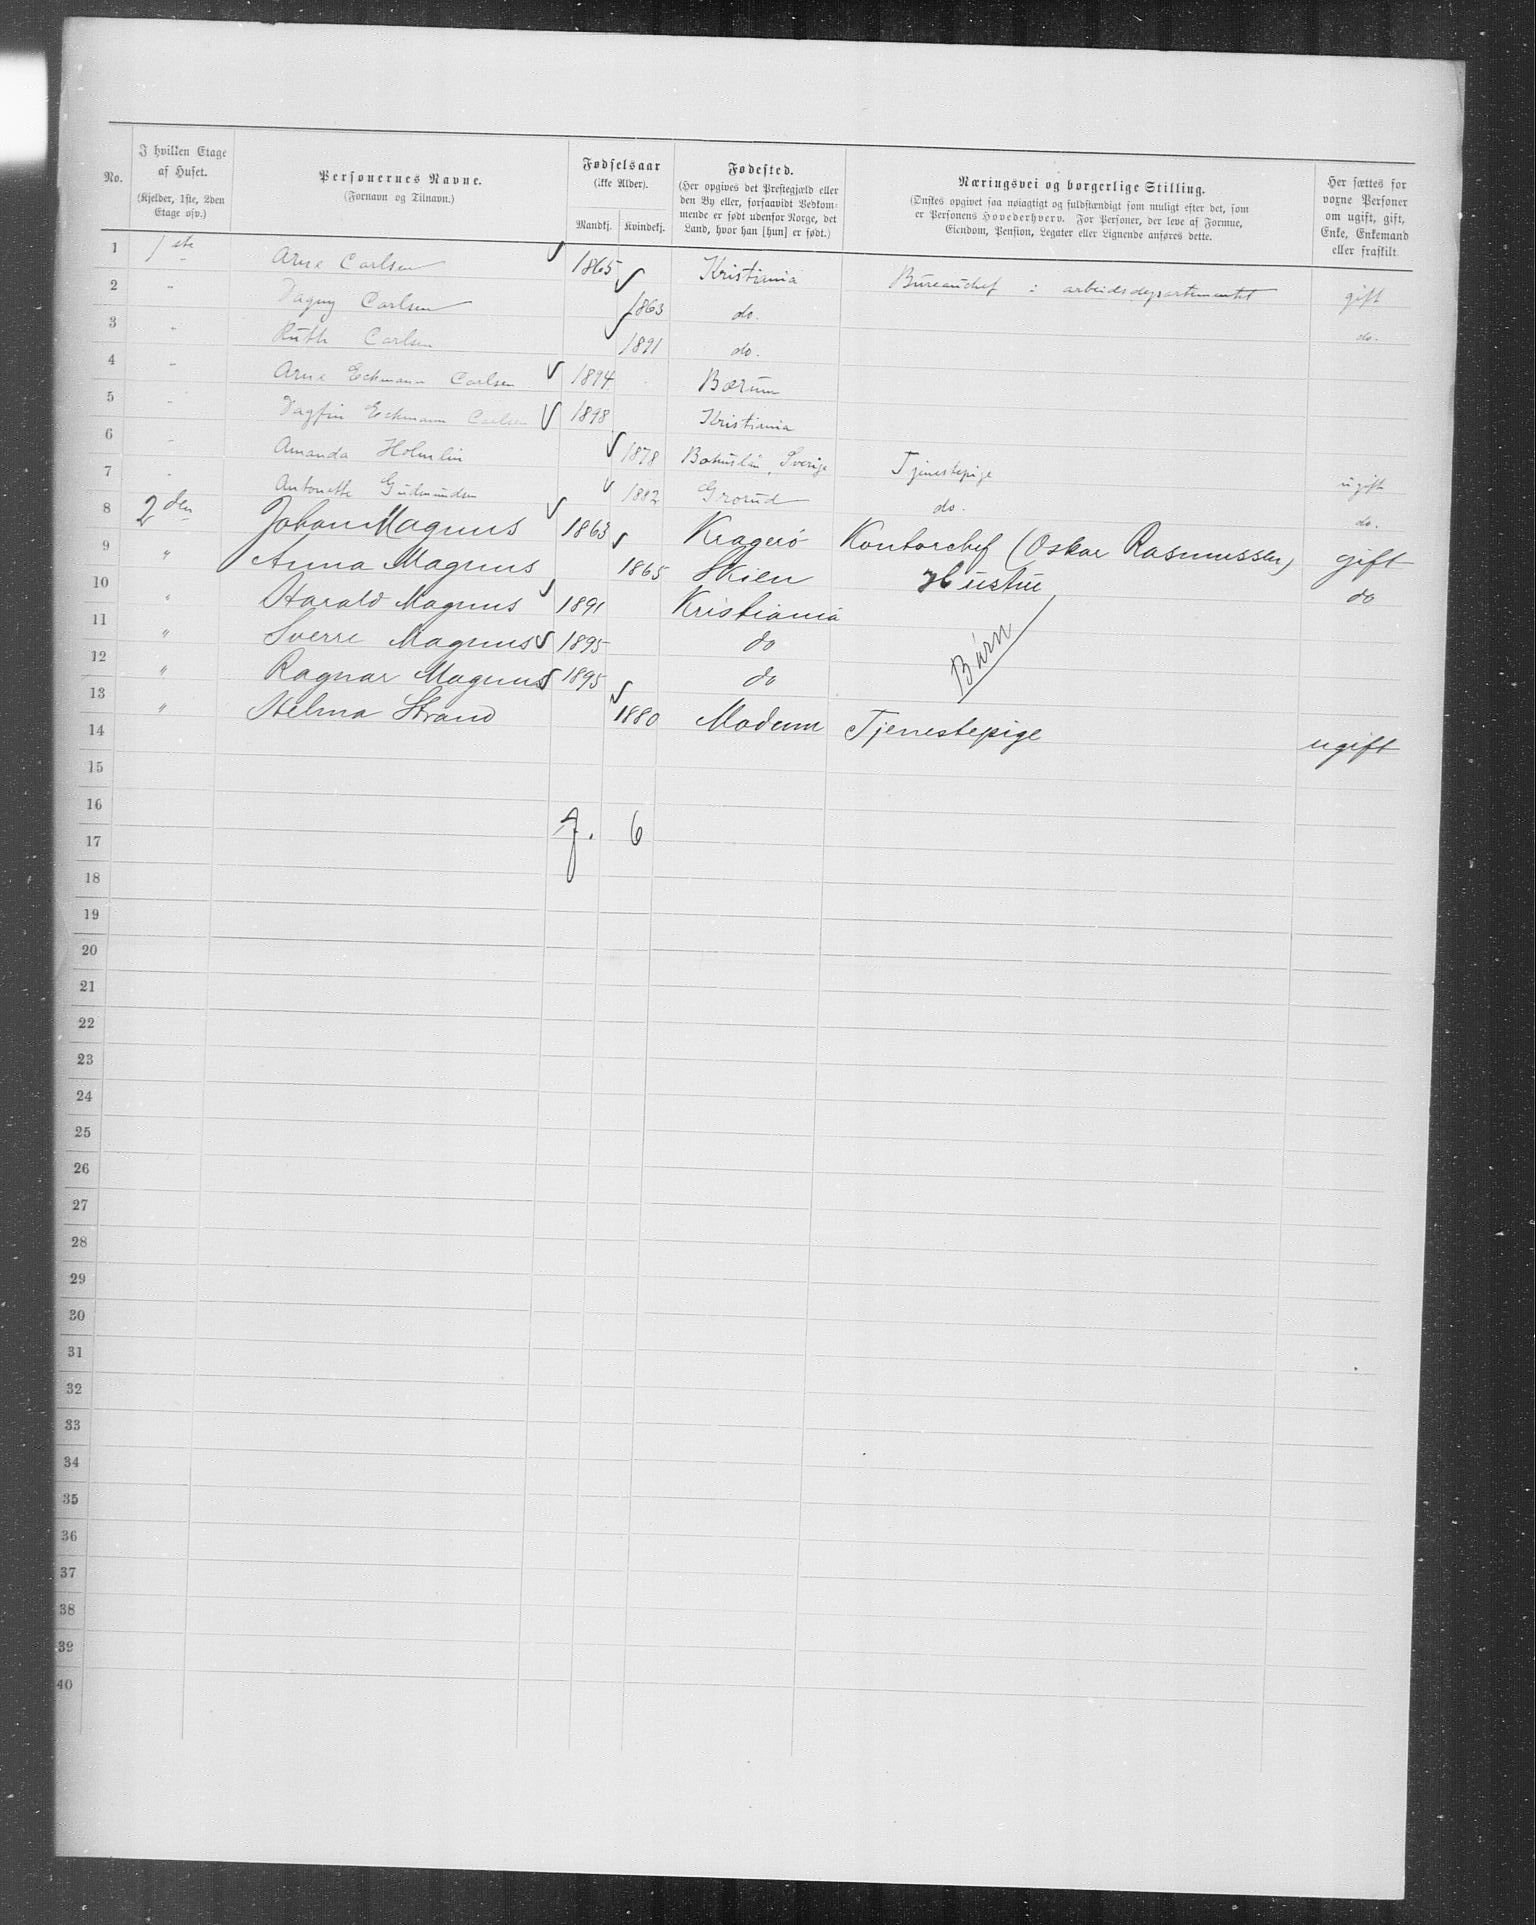 No.
I hvilken Etage af Huset. (Kjelder, 1ste, 2den Etage osv.)
Personernes Navne. (Fornavn og Tilnavn.)
Fødselsaar (ikke Alder). Mandkj. Kvindekj.
Fødested. (Her opgives det Prestegjæld eller den By eller, forsaavidt Vedkommende er født udenfor Norge, det Land, hvor han [hun] er født.)
Næringsvei og borgerlige Stilling. (Ønskes opgivet saa nøiagtigt og fuldstændigt som muligt efter det, som er Personens Hovederhverv. For Personer, der leve af Formue, Eiendom, Pension, Legater eller Lignende anføres dette.
Her sættes for voxne Personer om ugift, gift, Enke, Enkemand eller fraskilt.
1 1ste Arne Carlsen 1865 Kristiania Bureauchef i arbeidsdepartementet gift
2 " Dagny Carlsen 1863 do. do.
3 " Ruth Carlsen 1891 do.
4 " Arne Eckmann Carlsen 1894 Bærum
5 " Dagfin Eckmann Carlsen 1898 Kristiania
6 " Amanda Holmlin 1878 Bohuslän, Sverige Tjenestepige ugift
7 " Antonette Gudmundsen 1882 Grorud do. do.
8 2den Johan Magnus 1863 Kragerö Kontorchef (Oskar Rasmussen) gift
9 " Anna Magnus 1865 Skien Hustru do
10 " Harald Magnus 1891 Kristiania
11 " Sverre Magnus 1895 do Børn
12 " Ragnar Magnus 1895 do
13 " Helma Strand 1880 Modum Tjenestepige ugift
14
15
16
7. 6
17
18
19
20
21
22
23
24
25
26
27
28
29
30
31
32
33
34
35
36
37
38
39
40